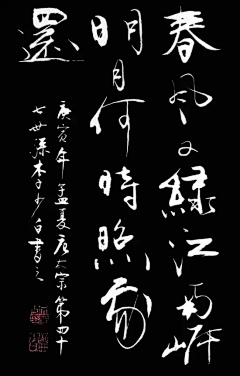 春風又綠江南岸
明月何時照我
還
庚寅年孟夏唐太宗第四十
七世孫木子少白書之